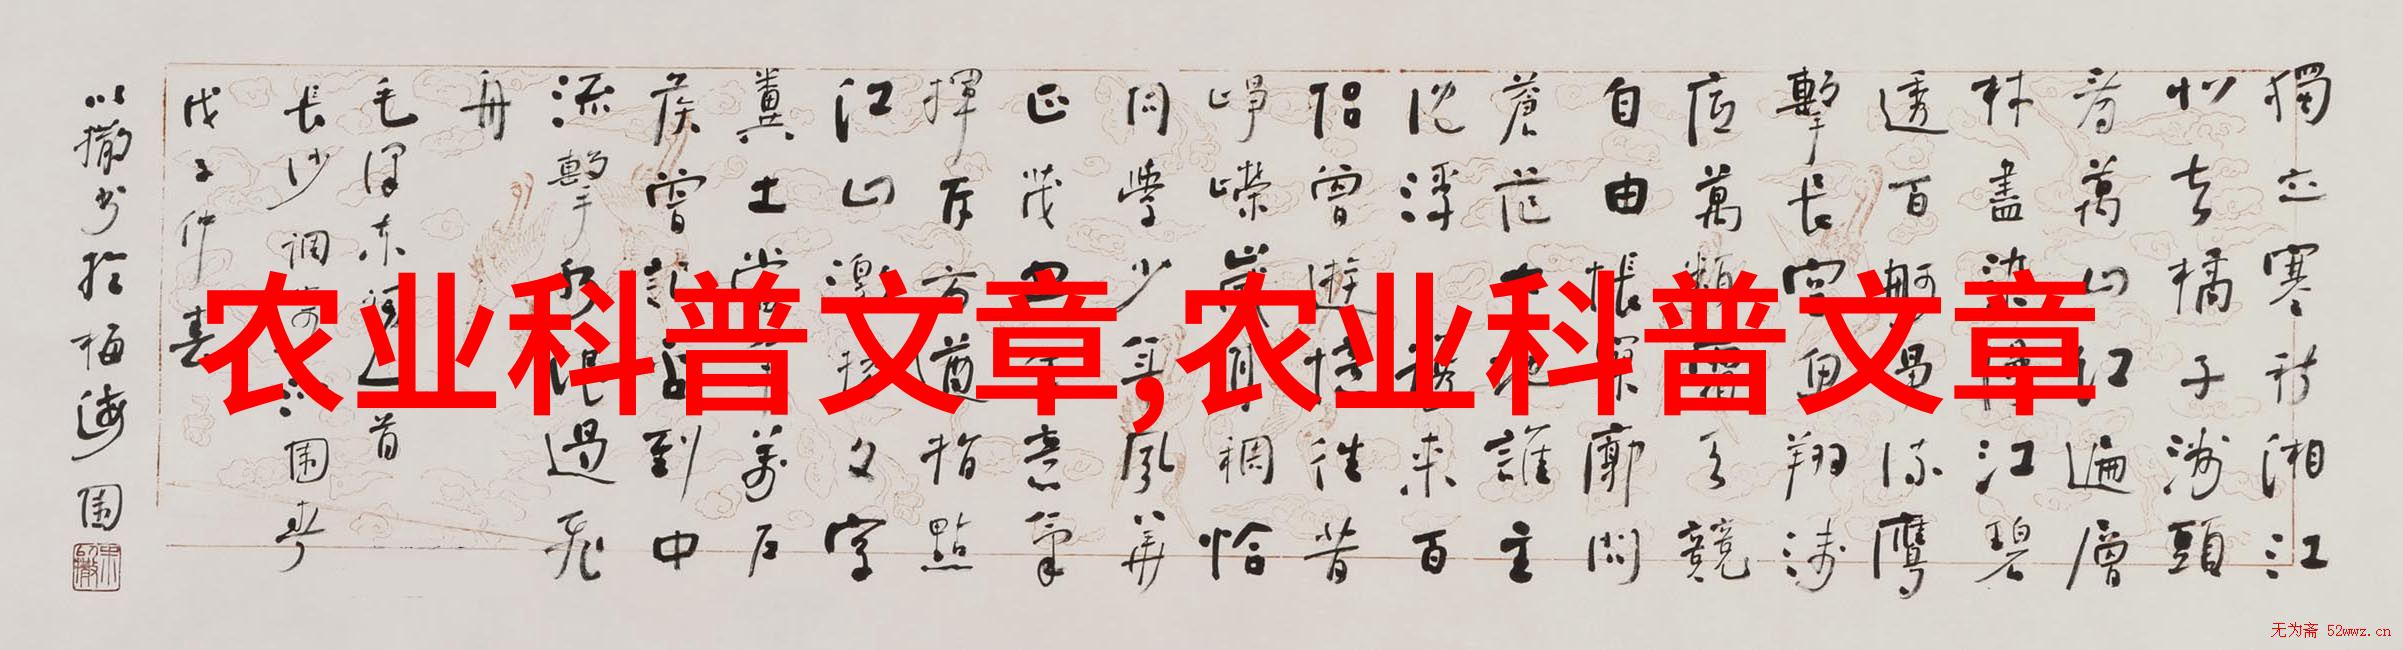 獨立寒秋湘江
北去橘子洲頭
看萬山红遍層
林盡染漫江碧
透百舸爭流鷹
擊長空魚翔淺
底萬類霜天競
自由悵寥廓問
蒼茫大地誰主
沈浮携來百
侣曾遊憶往昔
崢嶸歲月稠恰
同學少年風華
正茂書生意氣
揮斥方遒指點
江山激揚文字
糞土當年萬户
侯曾記否到中
流擊水浪遏飛
舟
毛澤东詞一首
長沙調寄沁园春
戊子仲春
以撒书於梅海園
农业科普文章,农业科普文章
无为斋 52wwz.cn